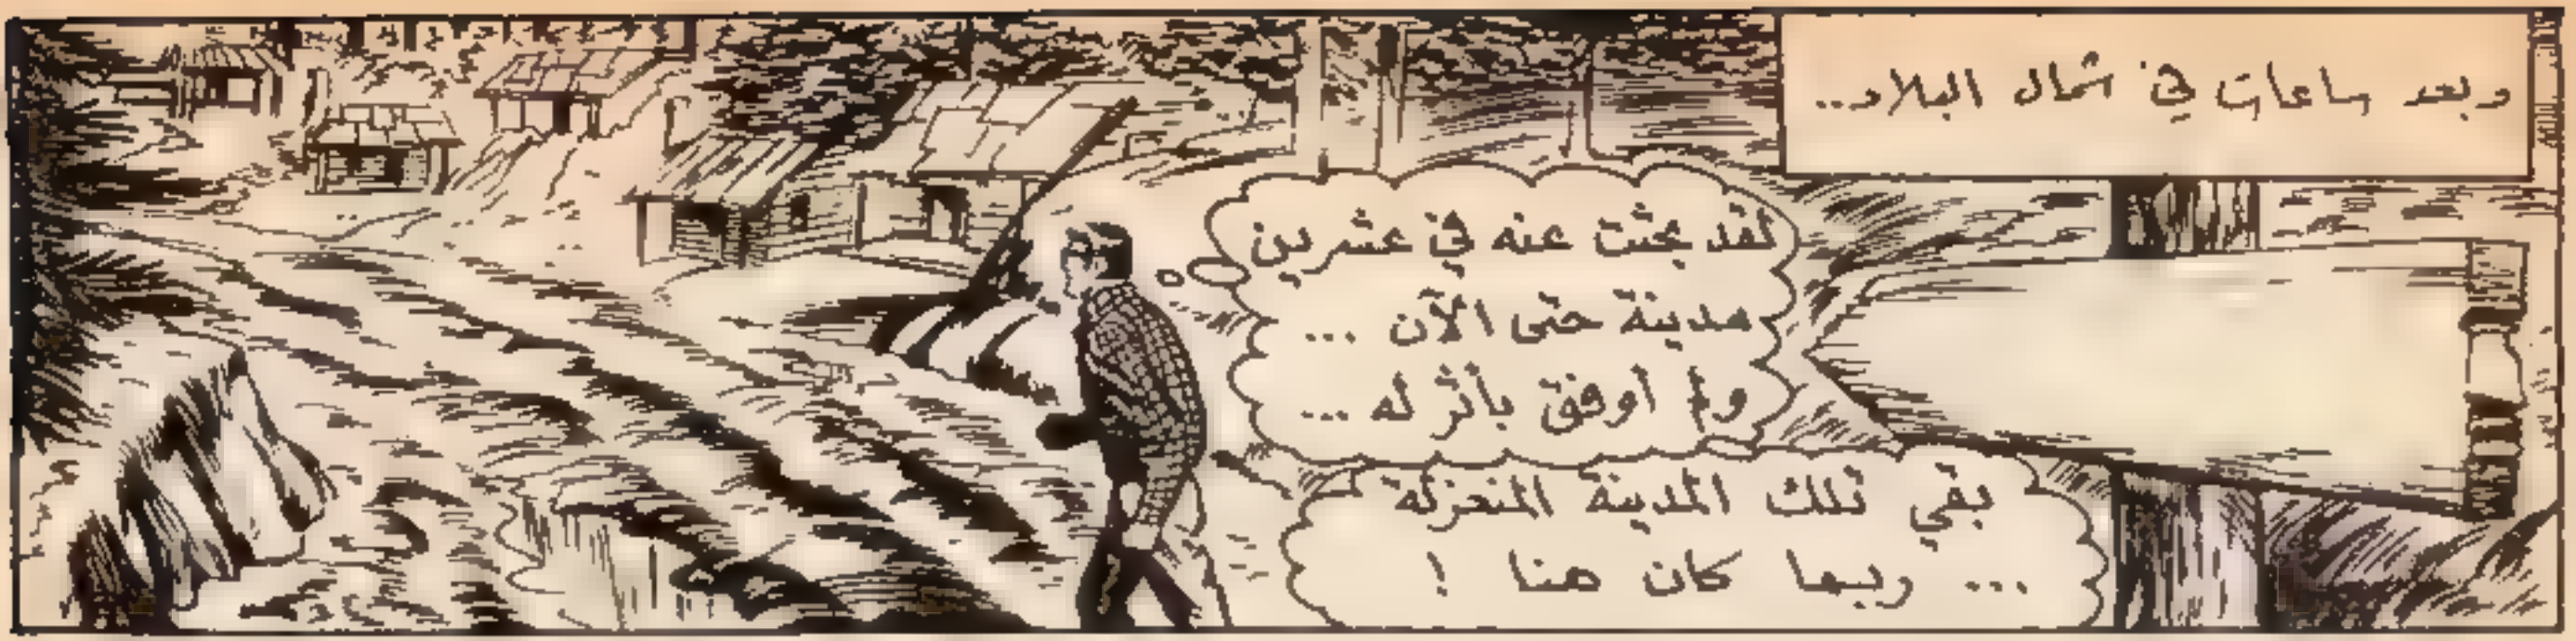 وبعد ساعات في شمال البلاد..
لقد بحثت عنه في عشرين
مدينة حتى الآن ...
ولم أوفق بأثر له ...
بقي تلك المدينة المنعزلة
... ربما كان هنا !